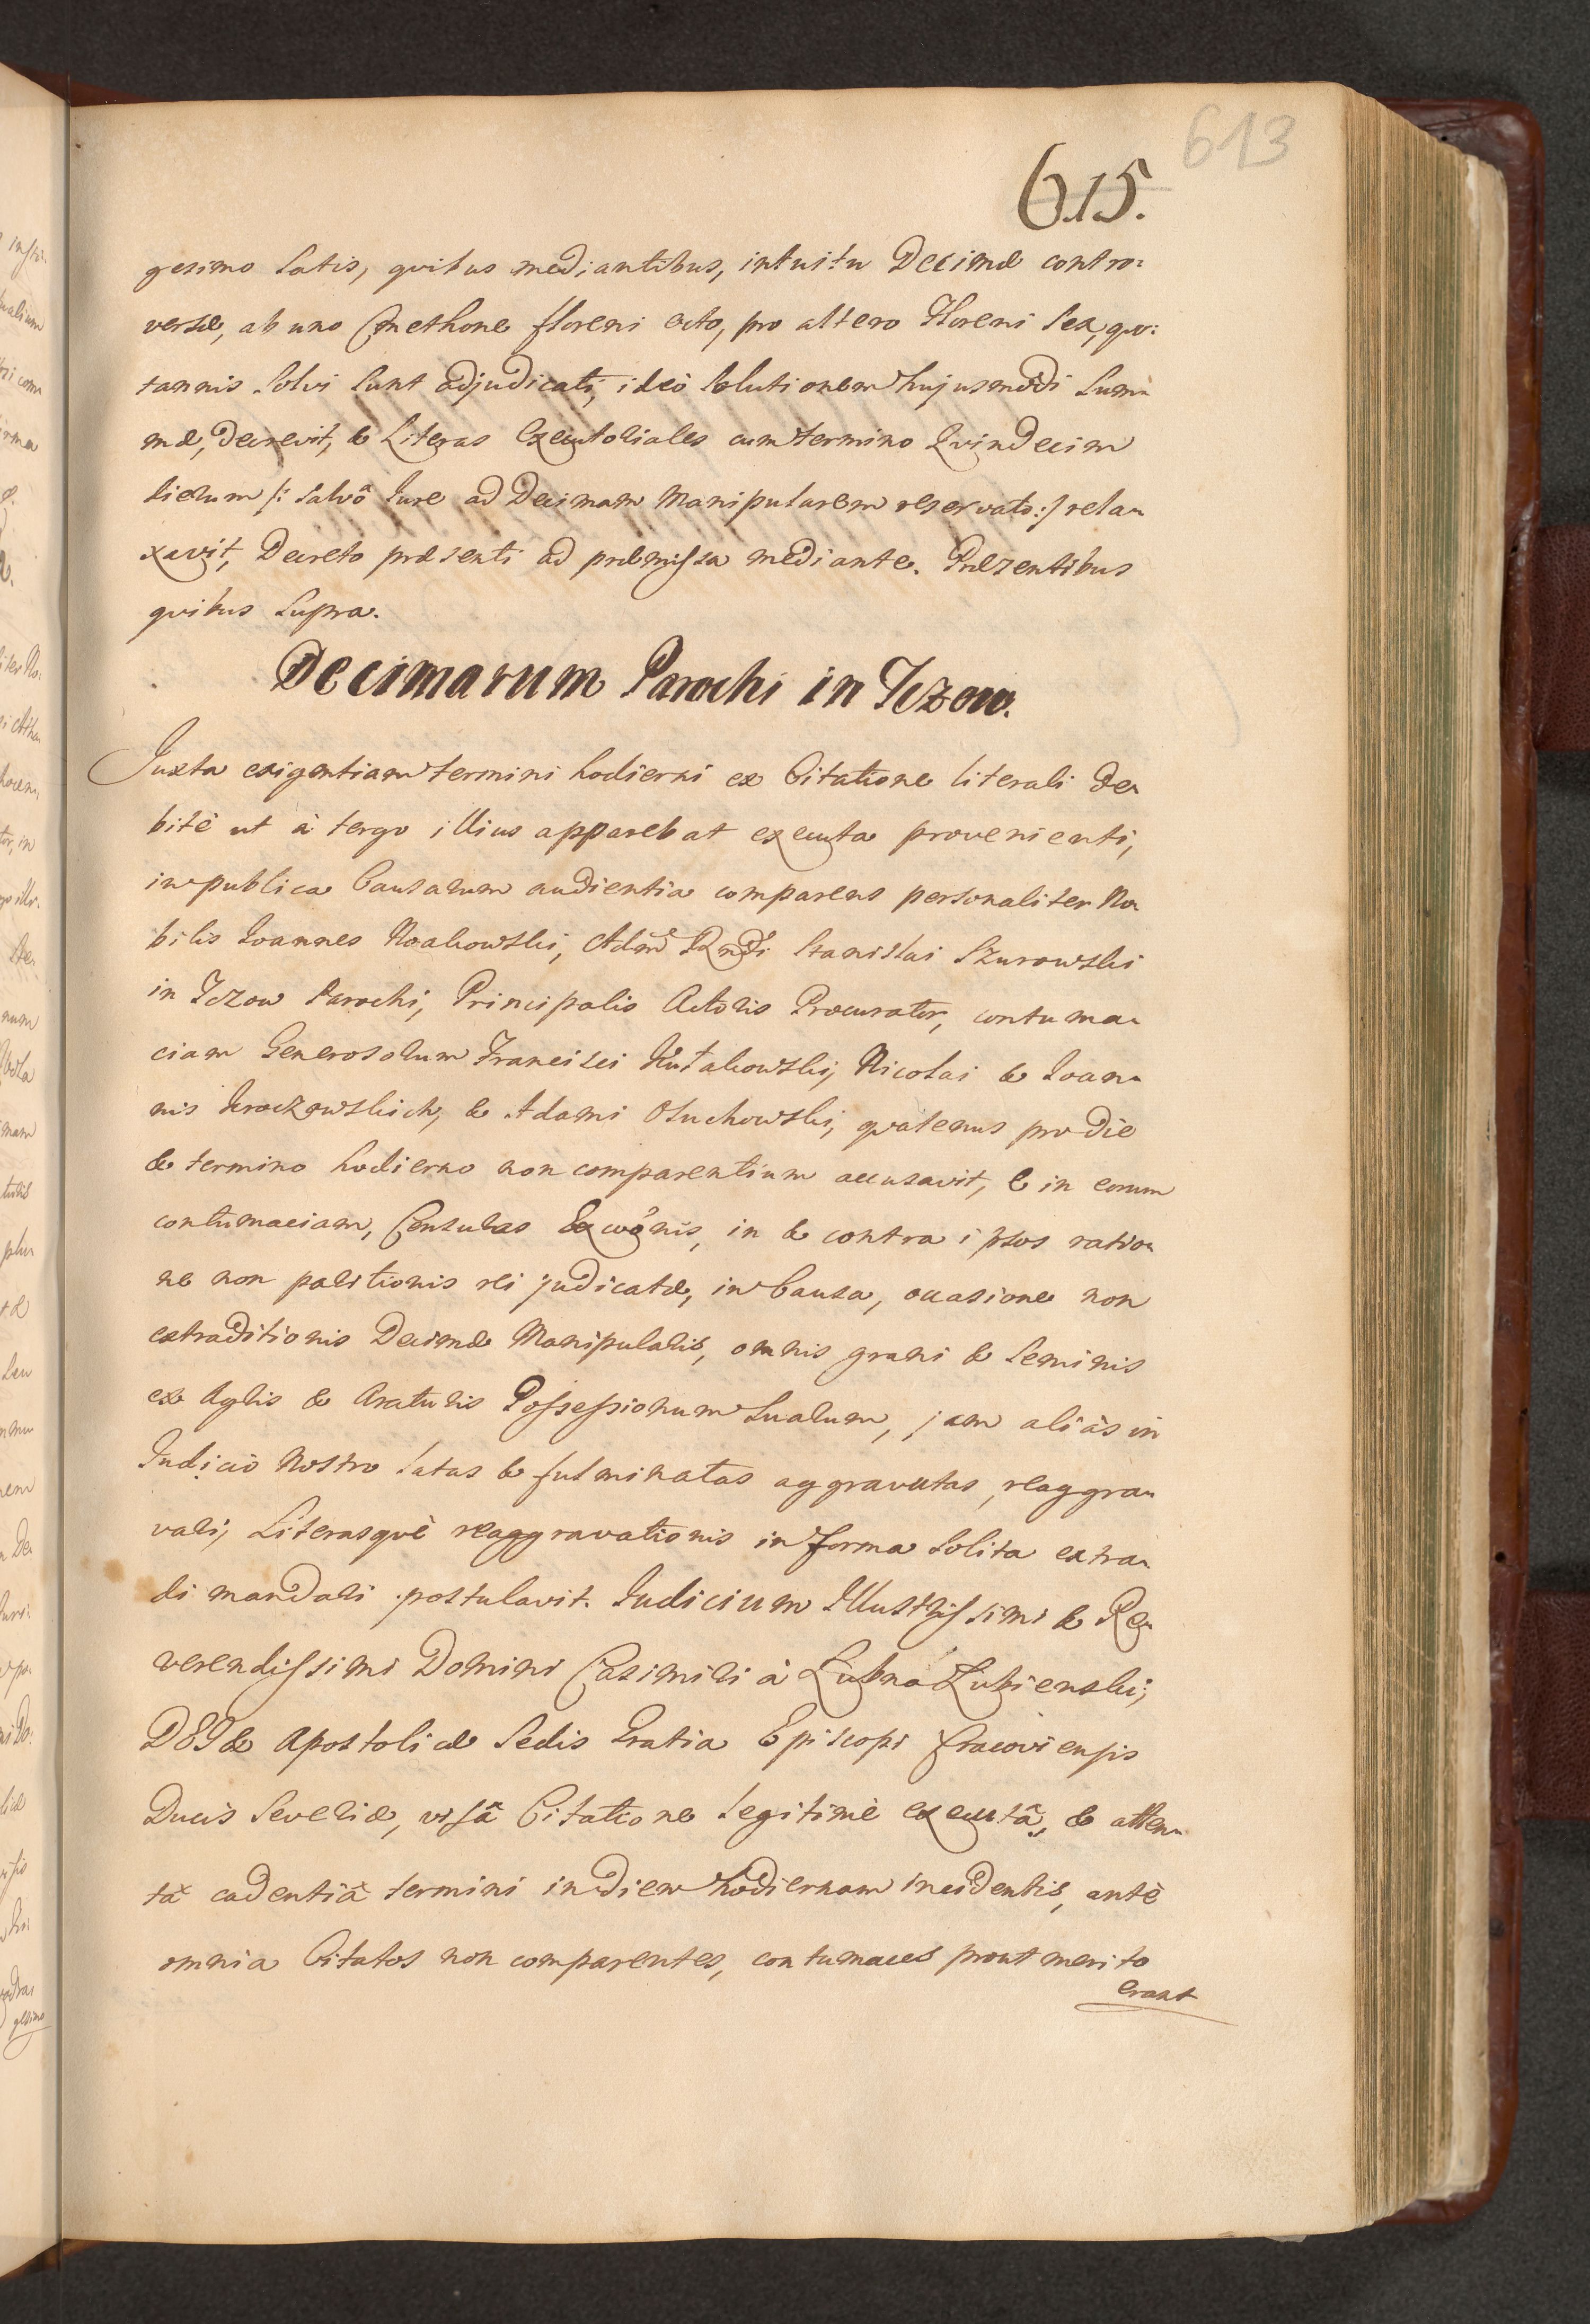 613
615.
gesimo latis, quibus mediantibus, intuitu Decimæ contro:
versæ, ab uno Cmethone floreni octo, pro altero Floreni Sex, quo:
tannis Solvi Sunt adjudicati, ideò Solutionem hujusmodi Sum-
mæ, decrevit, & Literas Executoriales cum termino Quindecim
dierum /: salvô Jure ad Decimam Manipularem reservato :/ rela-
xavit, Decreto præsenti ad præmissa mediante. Præzentibus
quibus Supra.
Decimarum Parochi in Tczow.
Juxta exigentiam termini hodierni ex Citatione literali de-
bitè ut à tergo illius apparebat executa provenienti,
in publica Causarum audientia comparens personaliter No-
bilis Joannes Noakowski, Adm Rndi Stanislai Szurowski
in Tczow Parochi, Principalis Actoris Procurator, contuma-
ciam Generosorum Francisci Kułakowski, Nicolai & Joan-
nis Kroczowskich, & Adami Osuchowski, quatenus pro die
& termino hodierno non comparentium accusavit, & in eorum
contumaciam, Censuras Excõnis, in & contra ipsos ratio-
ne non paritionis rei judicatæ, in Causa, occasione non
extraditionis Decimæ Manipularis, omnis grani & Seminis
ex Agris & Araturis Possessionum Suarum, jam aliàs in
Judicio Nostro latas & fulminatas aggravatas, reaggra-
vari, Literasquè reaggravationis in forma Solita extra-
di mandari postulavit. Judicium Illustrissimi & Re-
verendissimi Domini Casimiri à Łubna Łubienski,
DEI & Apostolicæ Sedis Gratia Episcopi Cracoviensis
Ducis Severiæ, visâ Citatione legitimè executâ, & atten-
tâ cadentiâ termini in diem hodiernam incidentis, antè
omnia Citatos non comparentes, contumaces prout merito
erant